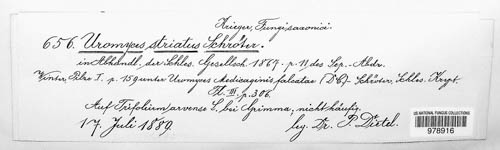 Krieger, Fungi saxonici.
656. Uromyces striatus Schröter.
in Abhandl. der Schles. Gesellsch. 1869. p. 11 des Sep.-Abdr.
Winter, Pilze I. p. 159 unter Uromyces Medicaginis falcatae (DC). Schröter, Schles. Krypt.
Fl. III. p. 306.
Auf Trifolium arvense L. bei Grimma; nicht häufig.
17. Juli 1889. leg. Dr. P. Dietel.
US NATIONAL FUNGUS COLLECTIONS
978916